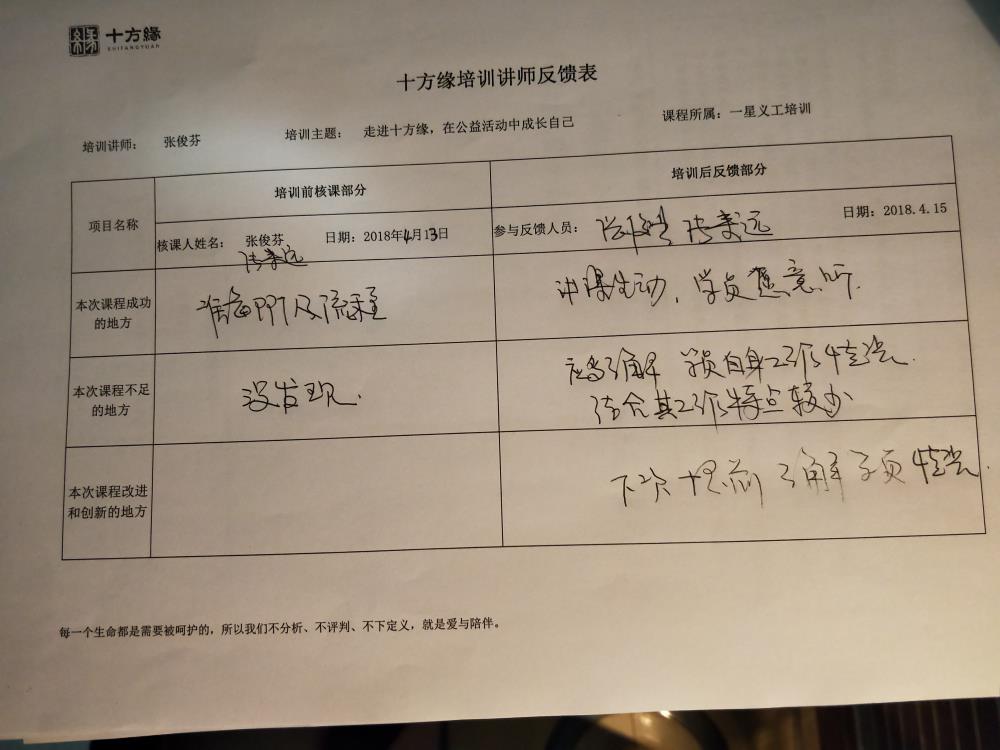 十方缘
SHIFANGYUAN
十方缘培训讲师反馈表
培训讲师： 张俊芬 培训主题： 走进十方缘，在公益活动中成长自己 课程所属：一星义工培训
项目名称
培训前核课部分
培训后反馈部分
核课人姓名： 张俊芬 日期：2018年4月13日
参与反馈人员： 日期：2018.4.15
本次课程成功
的地方
准备PPT及流程
讲课生动，学员愿意听.
本次课程不足
的地方
没发现.
了解 学员自身工作情况.
结合其工作特点较少
本次课程改进
和创新的地方
下次提前了解学员情况.
每一个生命都是需要被呵护的，所以我们不分析、不评判、不下定义，就是爱与陪伴。